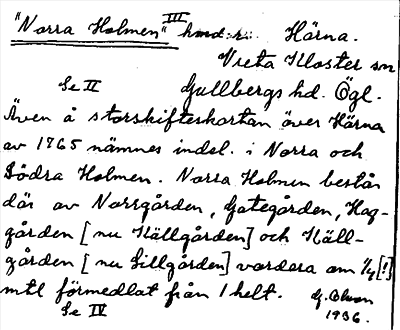 "Norra Holmen" III hmd. r. Härna.
Vreta Kloster sn
Se II Gullbergs hd. Ögl.
Även å storskifteskartan över Härna
av 1765 nämnes indel. i Norra och
Södra Holmen. Norra Holmen består
där av Norrgården, Gategården, Hag-
gården [nu Källgården] och Käll-
gården [nu Lillgården] vardera om 1/4 [!]
mtl förmedlat från 1 helt. G. Olson
Se IV 1936.